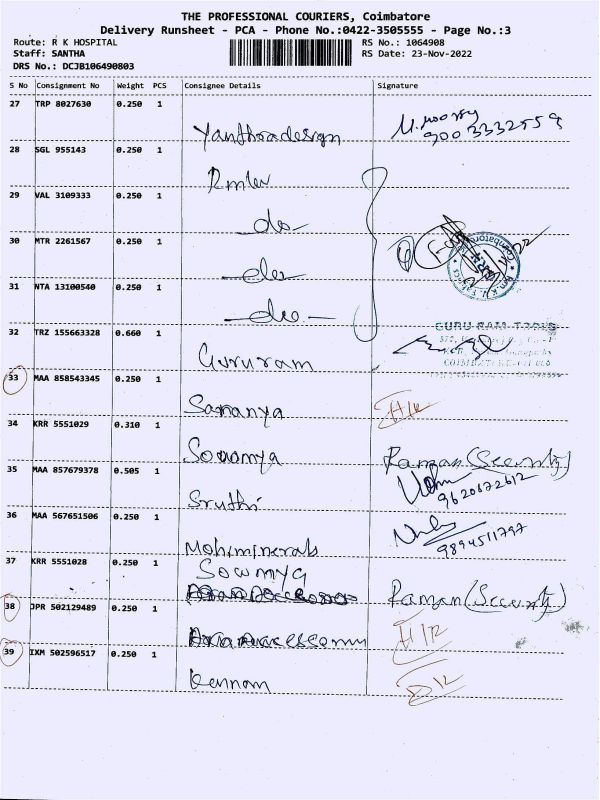 THE PROFESSIONAL COURIERS, Coimbatore
Delivery Runsheet - PCA - Phone No.:0422-3505555 - Page No.:3
Route: R K HOSPITAL RS No.: 1064908
Staff: SANTHA RS Date: 23-Nov-2022
DRS No.: DCJB106490803
S No Consignment No Weight PCS Consignee Details Signature
27 TRP 8027630 0.250 1
Yanthradesign 9003332559
28 SGL 955143 0.250 1
29 VAL 3109333 0.250 1
do
30 MTR 2261567 0.250 1
do
31 NTA 13100540 0.250 1
do
32 TRZ 155663328 0.660 1
Gururam GURU RAM
33 MAA 858543345 0.250 1
Saranya
34 KRR 5551029 0.310 1
Sowmya Raman (Security)
35 MAA 857679378 0.505 1
Sruthi 9620672612
36 MAA 567651506 0.250 1
Mohiminerals 9894511797
37 KRR 5551028 0.250 1
Sowmya
Raman (Security)
38 JPR 502129489 0.250 1
39 IXM 502596517 0.250 1
Kennam